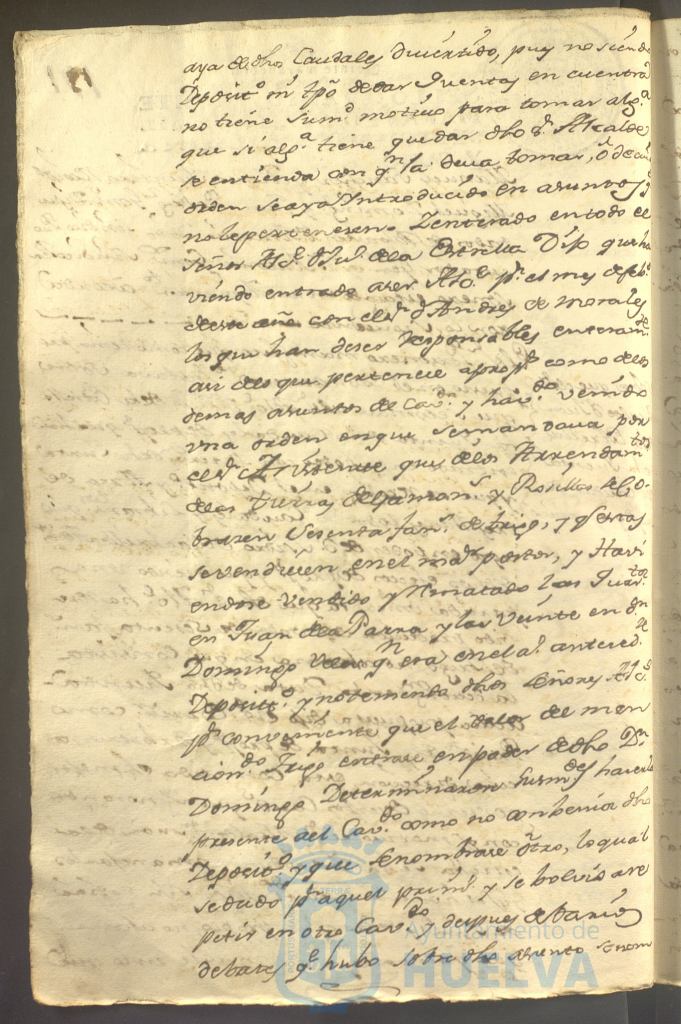 aya de dhos Caudales divertido, pues no siendo
Deposit.º ni tpô de dar Quentas en cuentra
no tiene sum.d motivo para tomar alg.a
que si alg.a tiene que dar dho S.r Alcalde
se entienda con q.n la deva tomar, ô de cuia
orden se aya Introducido en asuntos q.
no le pertenesen. Y enterado en todo el
Señor de la Estrella Dijo que ha
viendo entrado a ser Alc.e p.r el mes de feb.º
de este año con el S.r d.n Andres de Morales
los que han de ser responsables enteram.te
asi de lo que pertenece a prop.s como de los
demas asuntos de Cav.do y hav.do venido
una orden en que se mandava por
el S.r que de los Arrendam.tos
de las tierras de y Rosillos se Co
brasen Sesenta fan.s de trigo, y estas
se vendiesen en el maior postor, y Havi
endose vendido y Rematado las quar.ta
en Juan de la Parra y las veinte en d.n
Domingo q.n era en el a.º antered.te
Deposit.º y no teniendo dhos Señores Alc.s
p.r conveniente que el valor de men
cion.do trigo entrase en poder de dho D.n
Domingo Determinaron hacerlo
presente al Cav.do como no combenia dho
Deposit.º y que se nombrase otro, lo qual
se dudo p.r aquel y se bolvio a re
petir en otro Cav.do y despues de barios
debates q.e hubo sobre dho asunto se nom
Ayuntamiento de
HUELVA